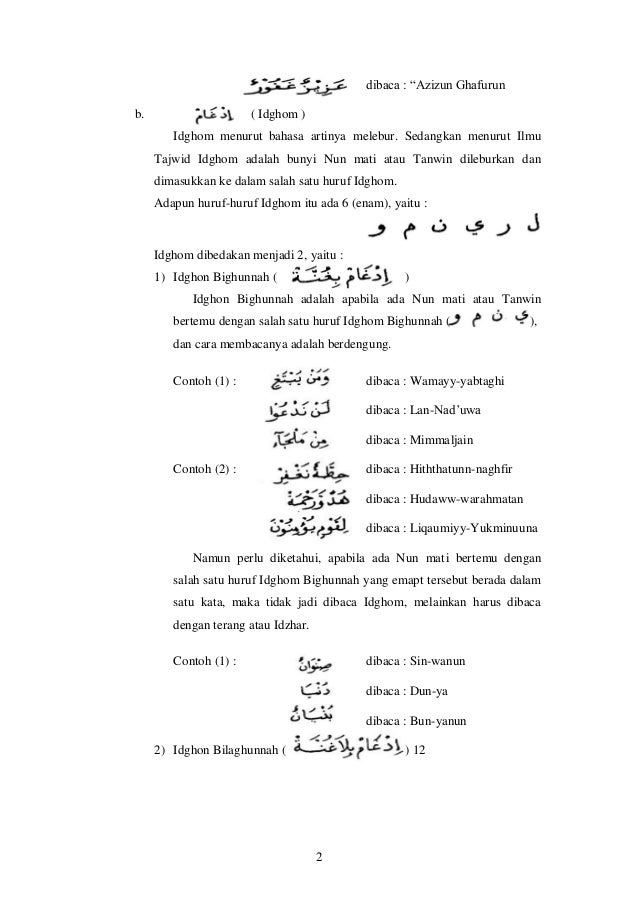 عَزِيْزٌ غَفُوْرٌ dibaca : “Azizun Ghafurun
b. إِدْغَامْ ( Idghom )
Idghom menurut bahasa artinya melebur. Sedangkan menurut Ilmu
Tajwid Idghom adalah bunyi Nun mati atau Tanwin dileburkan dan
dimasukkan ke dalam salah satu huruf Idghom.
Adapun huruf-huruf Idghom itu ada 6 (enam), yaitu :
ل ر ي ن م و
Idghom dibedakan menjadi 2, yaitu :
1) Idghon Bighunnah ( إِدْغَامْ بِغُنَّةْ )
Idghon Bighunnah adalah apabila ada Nun mati atau Tanwin
bertemu dengan salah satu huruf Idghom Bighunnah (ي ن م و),
dan cara membacanya adalah berdengung.
Contoh (1) : وَمَنْ يَبْتَغِ dibaca : Wamayy-yabtaghi
لَنْ نَدْعُوَا dibaca : Lan-Nad’uwa
مِنْ مَلْجَاٍ dibaca : Mimmaljain
Contoh (2) : حِطَّةٌ نَغْفِرْ dibaca : Hiththatunn-naghfir
هُدًى وَرَحْمَةً dibaca : Hudaww-warahmatan
لِقَوْمٍ يُؤْمِنُوْنَ dibaca : Liqaumiyy-Yukminuuna
Namun perlu diketahui, apabila ada Nun mati bertemu dengan
salah satu huruf Idghom Bighunnah yang emapt tersebut berada dalam
satu kata, maka tidak jadi dibaca Idghom, melainkan harus dibaca
dengan terang atau Idzhar.
Contoh (1) : صِنْوَانٌ dibaca : Sin-wanun
دُنْيَا dibaca : Dun-ya
بُنْيَانٌ dibaca : Bun-yanun
2) Idghon Bilaghunnah ( إِدْغَامْ بِلَاغُنَّةْ ) 12
2